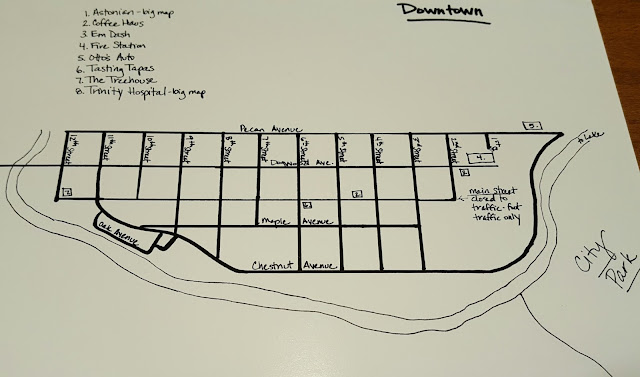 Downtown
1. Astonian-big map
2. Coffee Haus
3. Em Dash
4. Fire Station
5. Otto's Auto
6. Tasting Tapas
7. The Treehouse
8. Trinity Hospital-big map
Pecan Avenue
5.
to Lake
12th Street
11th Street
10th Street
9th Street
8th Street
7th Street
6th Street
5th Street
4th Street
3rd Street
2nd Street
1st
Dogwood Ave.
4.
main street
closed to
traffic-foot
traffic only
Maple Avenue
Oak Avenue
Chestnut Avenue
City
Park